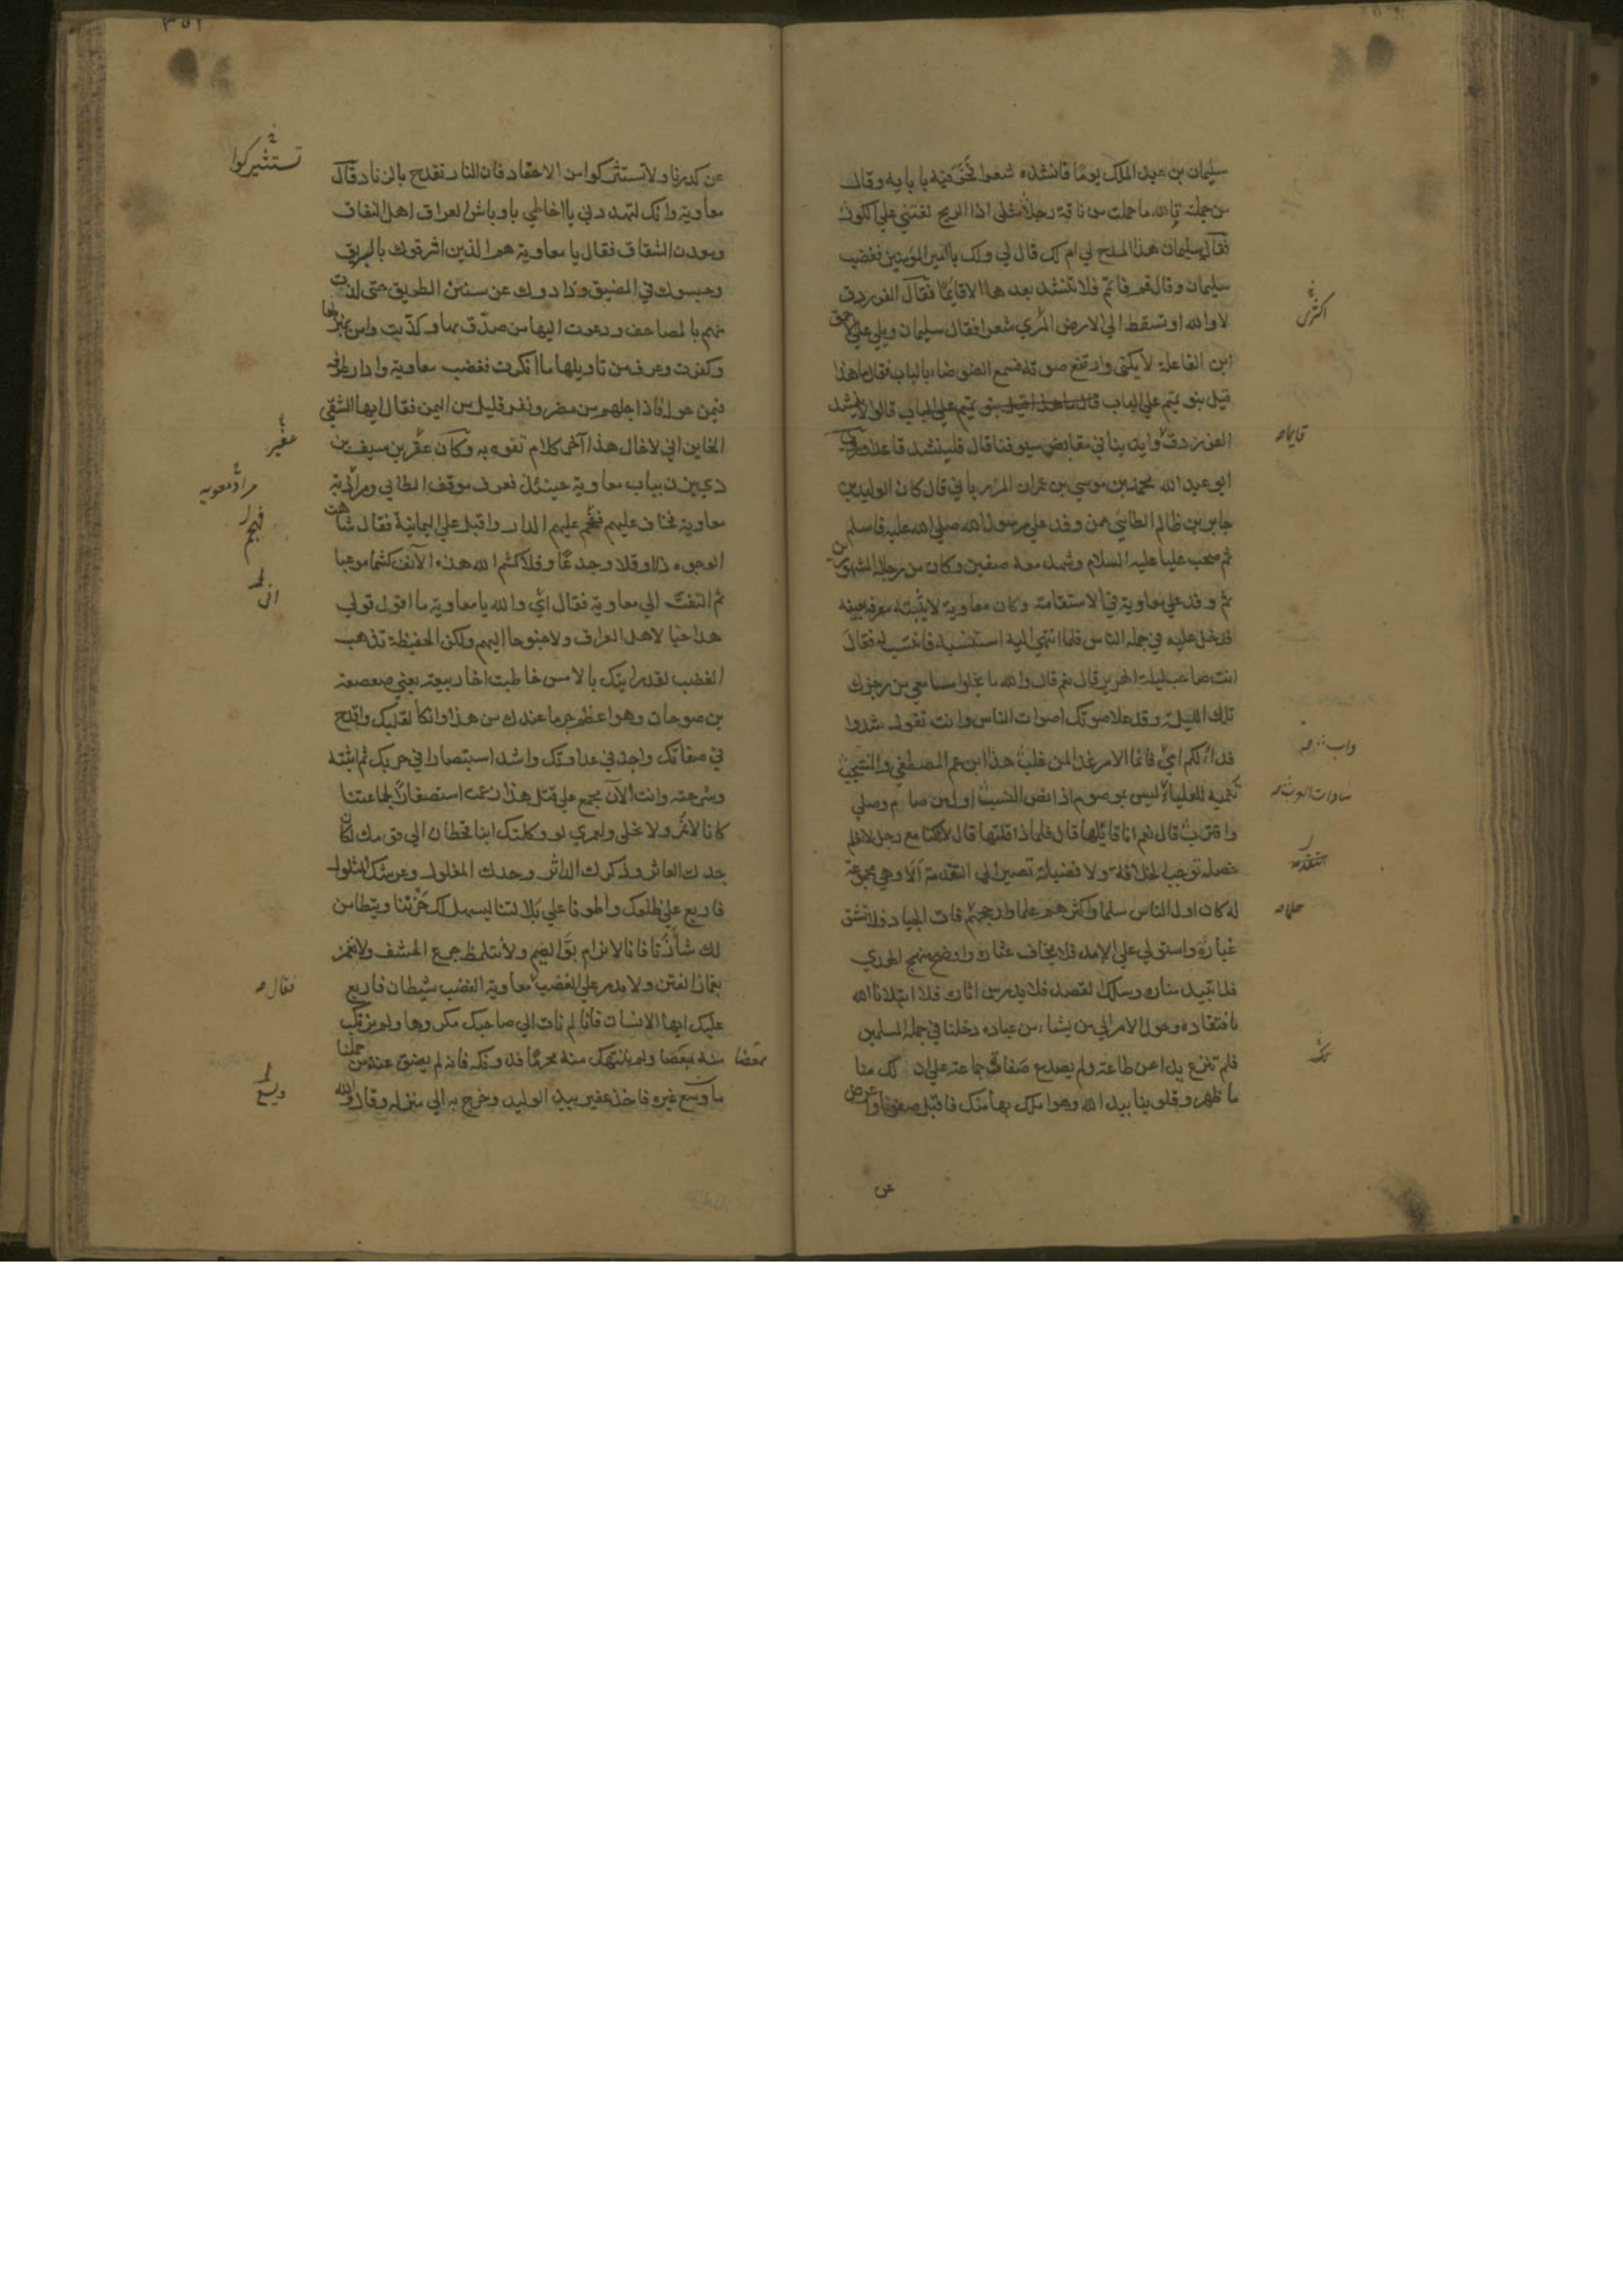 سليمان بن عبد الملك يومًا فانشده شعرا فخر فيه بابايه وقال
من جملته تالله ما حملت من ناقة رجلا مثلي اذا الريح لفتني علي الكور
فقال سليمان هذا المدح لي ام لك قال لي ولك يا امير المؤمنين فغضب
سليمان وقال قم فاتم فلا تنشد بعدها الا قايما فقال الفرزدق
لا والله او تسقط الي الارض اكثري شعرا فقال سليمان ويلي علي الاحمق
ابن الفاعلة لا يكنى وارتفع صوته فسمع الضوضاء بالباب فقال ما هذا
قيل بنو تميم علي الباب قالوا لا ينشد
الفرزدق وايدينا في مقابض سيوفنا قال فلينشد قاعدا
ابو عبد الله محمد بن موسي بن عمران المرزباني قال كان الوليد بن
جابر بن ظالم الطائي ممن وفد علي رسول الله صلي الله عليه فاسلم
ثم صحب عليا عليه السلام وشهد معه صفين وكان من رجاله المشهورين
ثم وفد علي معاوية في الاستقامة وكان معاوية لا يثبته معرفة بعينه
فدخل عليه في جملة الناس فلما انتهي اليه استنسبه فانتسب له فقال
انت صاحب ليلة الهرير قال نعم قال والله ما تخلوا مسامعي من رجزك
تلك الليلة وقد علا صوتك اصوات الناس وانت تقول شدوا
فداء لكم امي واب فانما الامر غدا لمن غلب هذا ابن عم المصطفي والمنتجب
تنميه للعلياء سادات العرب ليس بموصوم اذا نص النسب اول من صام وصلي
واقترب قال نعم انا قايلها قال فلماذا قلتها قال لانا كنا مع رجل لا نعلم
خصلة توجب الخلافة ولا فضيلة تصير الي التقدمة الا وهي مجموعة
له كان اول الناس سلما واكثرهم علما وارجحهم حلما فات الجياد فلا تشق
غباره واستولي علي الامد فلا يخاف عثاره واوضح منهج الهدي
فلا يبيد مناره وسلك القصد فلا يدرس اثاره فلما ابتلانا الله
بافتقاده وحول الامر الي من يشاء من عباده دخلنا في جملة المسلمين
فلم ننزع يدا عن طاعة ولم نصدع صفاة جماعة علي ان لك منا
ما ظهر وقلوبنا بيد الله وهو املك بها منك فاقبل صفونا واعرض
عن
اكثري
قايما
واب
سادات العرب
التقدمة
حلما
عن كدرنا ولا تستثر كوامن الاحقاد فان النار تقدح بالزناد قال
معاوية وانك لتهددني يا اخا طي باوباش العراق اهل النفاق
ومعدن الشقاق فقال يا معاوية هم الذين اشرقوك بالريق
وحبسوك في المضيق وذادوك عن سنن الطريق حتى لذت
منهم بالمصاحف ودعوت اليها من صدق بها وكذبت وامن بمنزلها
وكفرت وعرف من تاويلها ما انكرت فغضب معاوية وادار طرفه
فيمن حوله فاذا جلهم من مضر ونفر قليل من اليمن فقال ايها الشقي
الخاين اني لاخال هذا آخر كلام تفوه به وكان عفير بن سيف بن
ذي يزن بباب معاوية حينئذ فعرف موقف الطائي ومراد
معاوية فخاف عليهم فهجم عليهم الدار واقبل علي اليمانية فقال شاهت
الوجوه ذلا وقلا وجدعا وفلا كشم الله هذه الآنف كشما موعبا
ثم التفت الي معاوية فقال اني والله يا معاوية ما اقول قولي
هذا حبا لاهل العراق ولا جنوحا اليهم ولكن الحفيظة تذهب
الغضب لقد رايتك بالامس خاطبت اخا ربيعة يعني صعصعة
بن صوحان وهو اعظم جرما عندك من هذا وانكا لقلبك واقدح
في صفاتك واجد في عداوتك واشد استبصارا في حربك ثم اثبته
وسرحته وانت الآن مجمع علي قتل هذا زعمت استصغارًا لجماعتنا
كانا لا نمر ولا نحلى ولعمري لو وكلتك ابنا قحطان الي قومك لكان
جدك العاثر وذكرك الداثر وحدك المفلول وعرشك المثلول
فاربع علي ظلعك واطونا علي بلالتنا ليسهل لك حزننا ويتطامن
لك شاردنا فانا لا نرام بوقع الضيم ولا نتلمظ جرع الخسف ولا نغمز
بغماز الفتن ولا ندر علي الغضب فقال معاوية الغضب شيطان فاربع
عليك ايها الانسان فانا لم نات الي صاحبك مكروها ولم نرتكب
منه مغضبا ولم ننتهك منه محرما فدونكه فانه لم يضق عنه حلمنا
ما وسع غيره فاخذ عفير بيد الوليد وخرج به الي منزله وقال والله
تستثيركوا
عفير
مراد معويه
فهجم
اني
فقال
ويسع